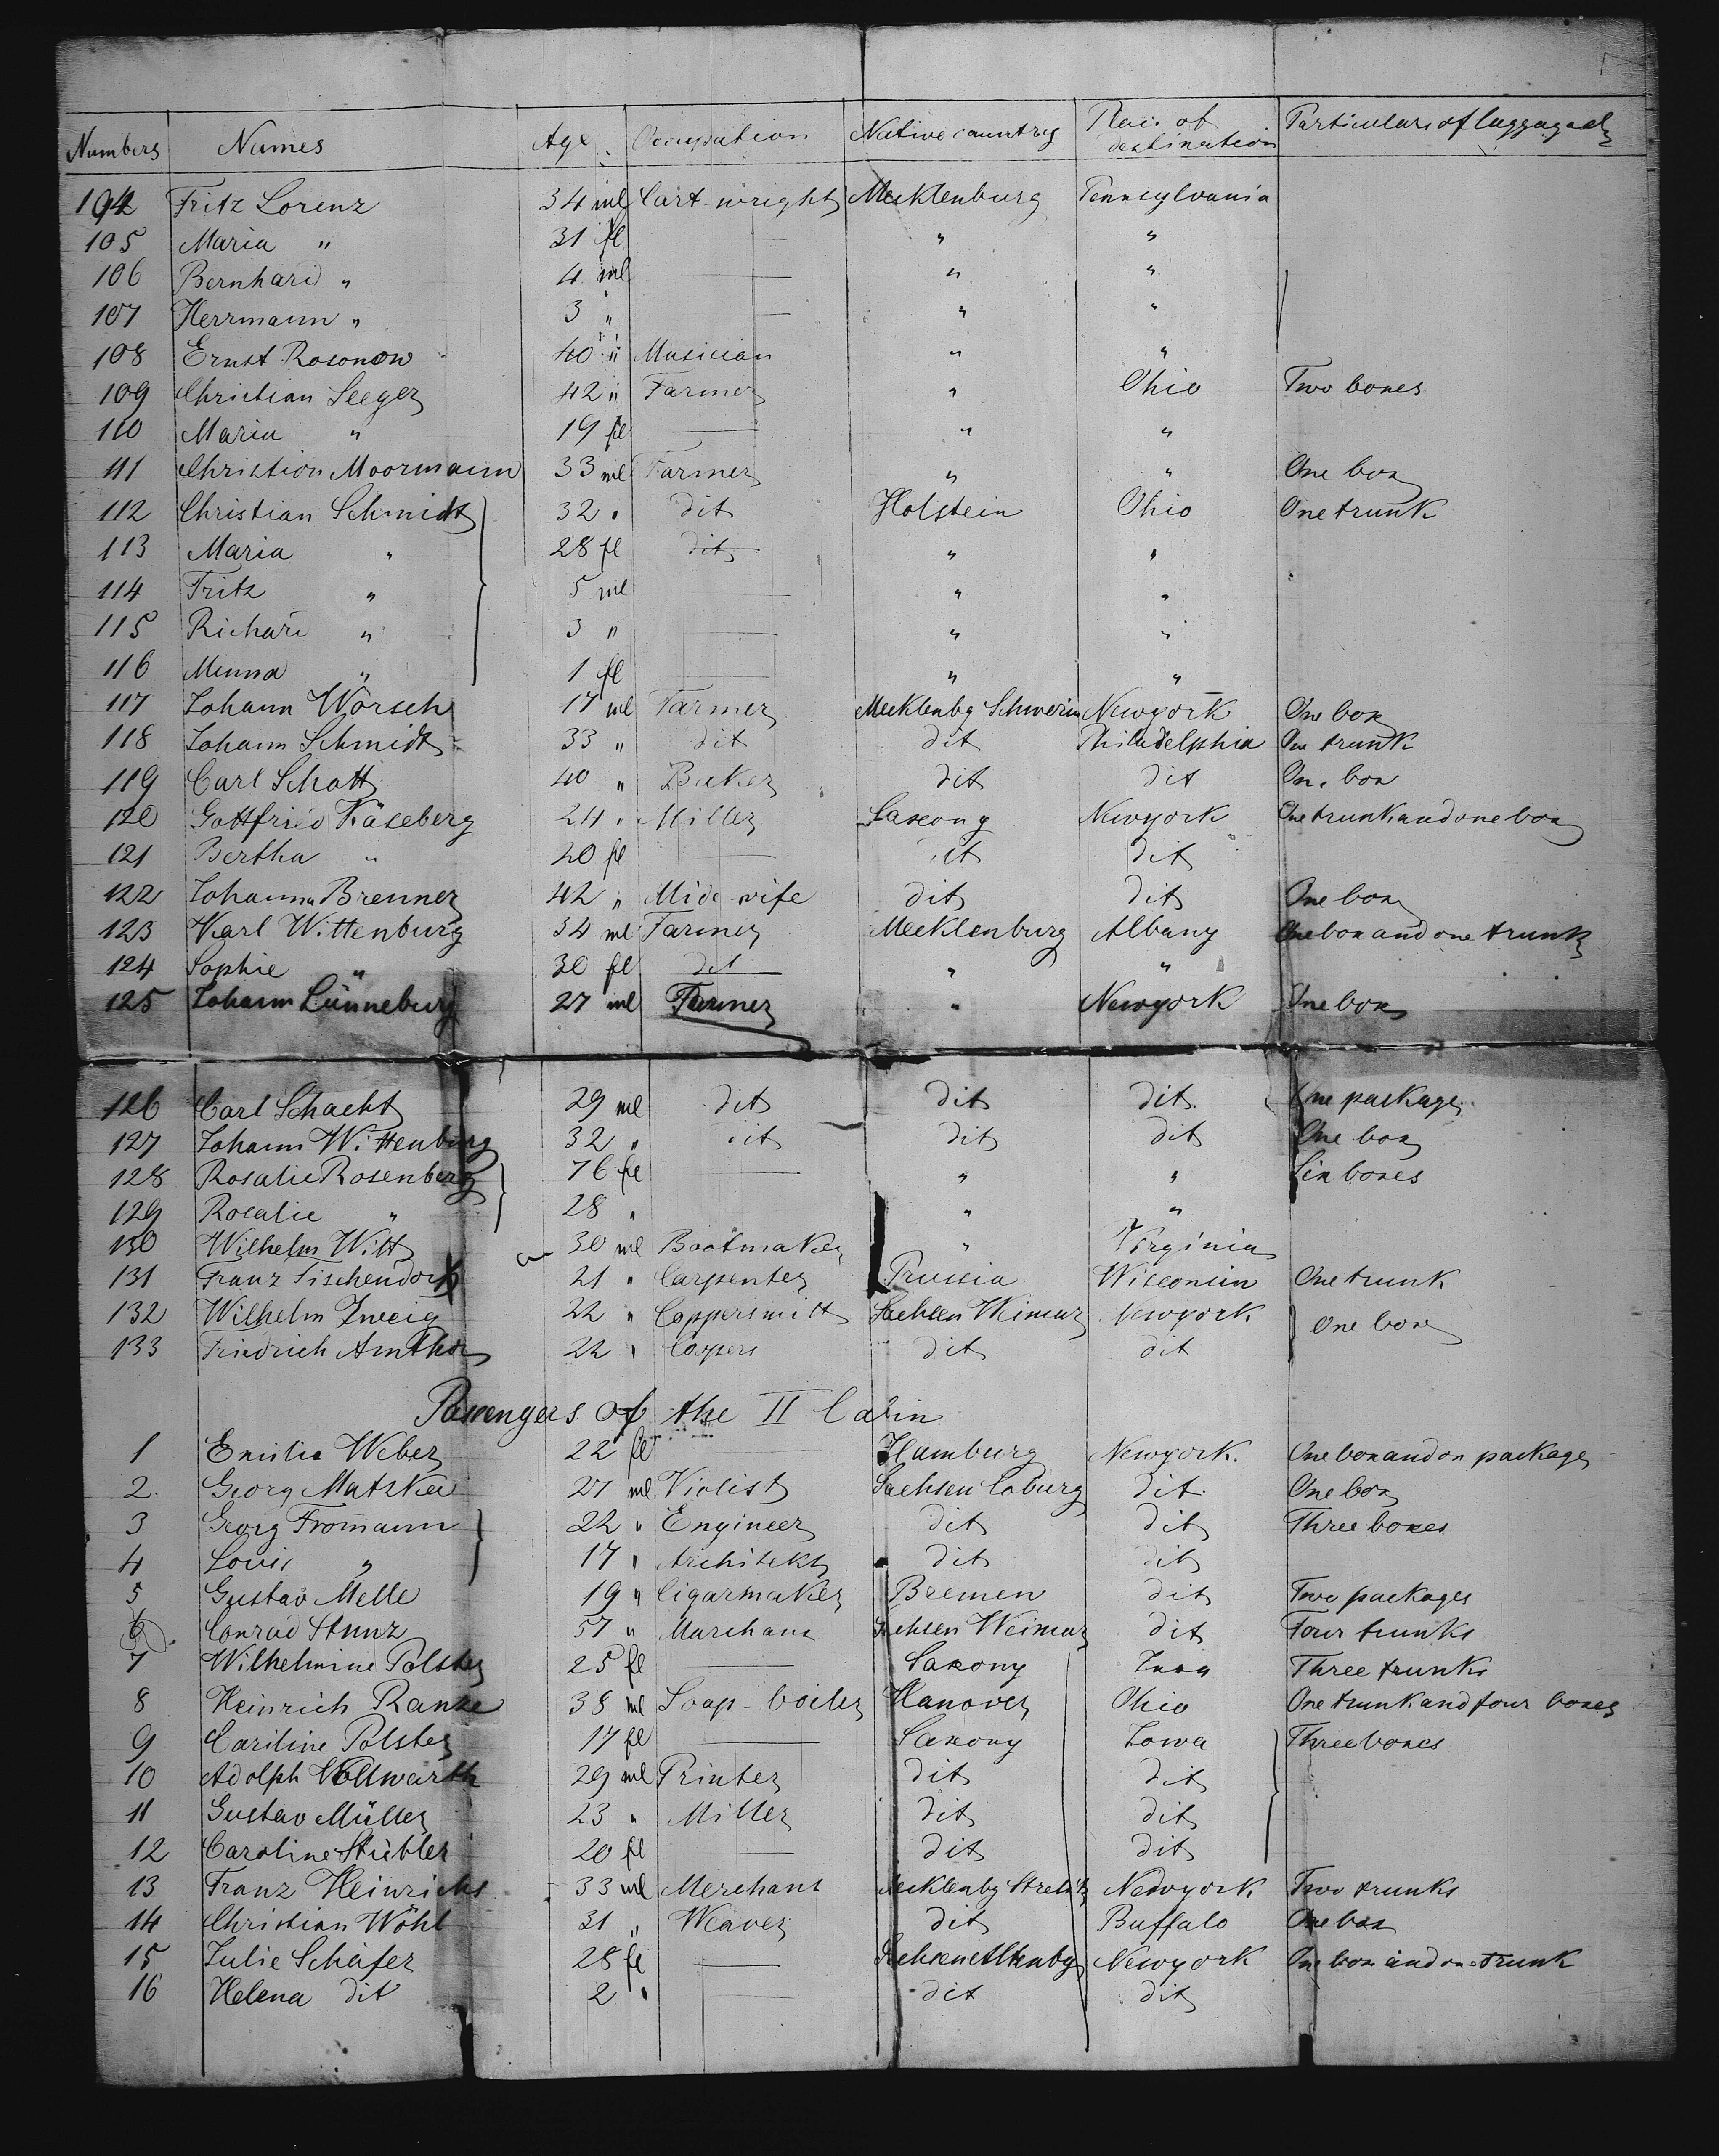 Numbers Names Age Occupation Native country Place of destination Particulars of luggage
104 Fritz Lorenz 34 ml Cart-wright Mecklenburg Pennsylvania
105 Maria " 31 fl — " "
106 Bernhard " 4 ml — " "
107 Herrmann " 3 " — " "
108 Ernst Rosonow 40 " Musician " "
109 Christian Seeger 42 " Farmer " Ohio Two boxes
110 Maria " 19 fl — " "
111 Christion Moormann 33 ml Farmer " " One box
112 Christian Schmidt 32 " dit Holstein Ohio One trunk
113 Maria " 28 fl dit " "
114 Fritz " 5 ml — " "
115 Richard " 3 " — " "
116 Minna " 1 fl — " "
117 Johann Worsch 17 ml Farmer Mecklenbg Schwerin Newyork One box
118 Johann Schmidt 33 " dit dit Philadelphia One trunk
119 Carl Schott 40 " Baker dit dit One box
120 Gottfried Käseberg 24 " Miller Saxony Newyork One trunk and one box
121 Bertha " 20 fl — dit dit
122 Johanna Brenner 42 " Mide-wife dit dit One box
123 Karl Wittenburg 34 ml Farmer Mecklenburg Albany One box and one trunk
124 Sophie " 30 fl dit " "
125 Johann Lünneburg 27 ml Farmer " Newyork One box
126 Carl Schacht 29 ml dit dit dit One package
127 Johann Wittenburg 32 " dit dit dit One box
128 Rosalie Rosenberg 76 fl — " " Six boxes
129 Rosalie " 28 " " "
130 Wilhelm Witt 30 ml Bootmaker " Virginia
131 Franz Tischendorf 21 " Carpenter Prussia Wisconsin One trunk
132 Wilhelm Zweig 22 " Coppersmitt Sachsen Weimar Newyork One box
133 Friedrich Amthor 22 " Coopers dit dit
Passengers of the II Cabin
1 Emilie Weber 22 fl — Hamburg Newyork. One box and on package
2. Georg Matzka 27 ml Violist Sachsen Coburg dit One box
3 Georg Fromann 22 " Engineer dit dit Three boxes
4 Louis " 17 " Architekt dit dit
5 Gustav Melle 19 " Cigarmaker Bremen dit Two packages
6 Conrad Stunz 57 " Marchant Sachsen Weimar dit Four trunks
7 Wilhelmine Polster 25 fl — Saxony Iowa Three trunks
8 Heinrich Ranke 38 ml Soap-boiler Hanover Ohio One trunk and four boxes
9 Cariline Polster 17 fl — Saxony Iowa Three boxes
10 Adolph Vollwarth 29 ml Printer dit dit
11 Gustav Müller 23 " Miller dit dit
12 Caroline Stiebler 20 fl — dit dit
13 Franz Heinrichs 33 ml Merchant Mecklenbg Strelitz Newyork Two trunks
14 Christian Wöhl 31 " Weaver dit Buffalo One box
15 Julie Schäfer 28 fl — Sachsen Altenbg Newyork One box and one trunk
16 Helena dit 2 " — dit dit